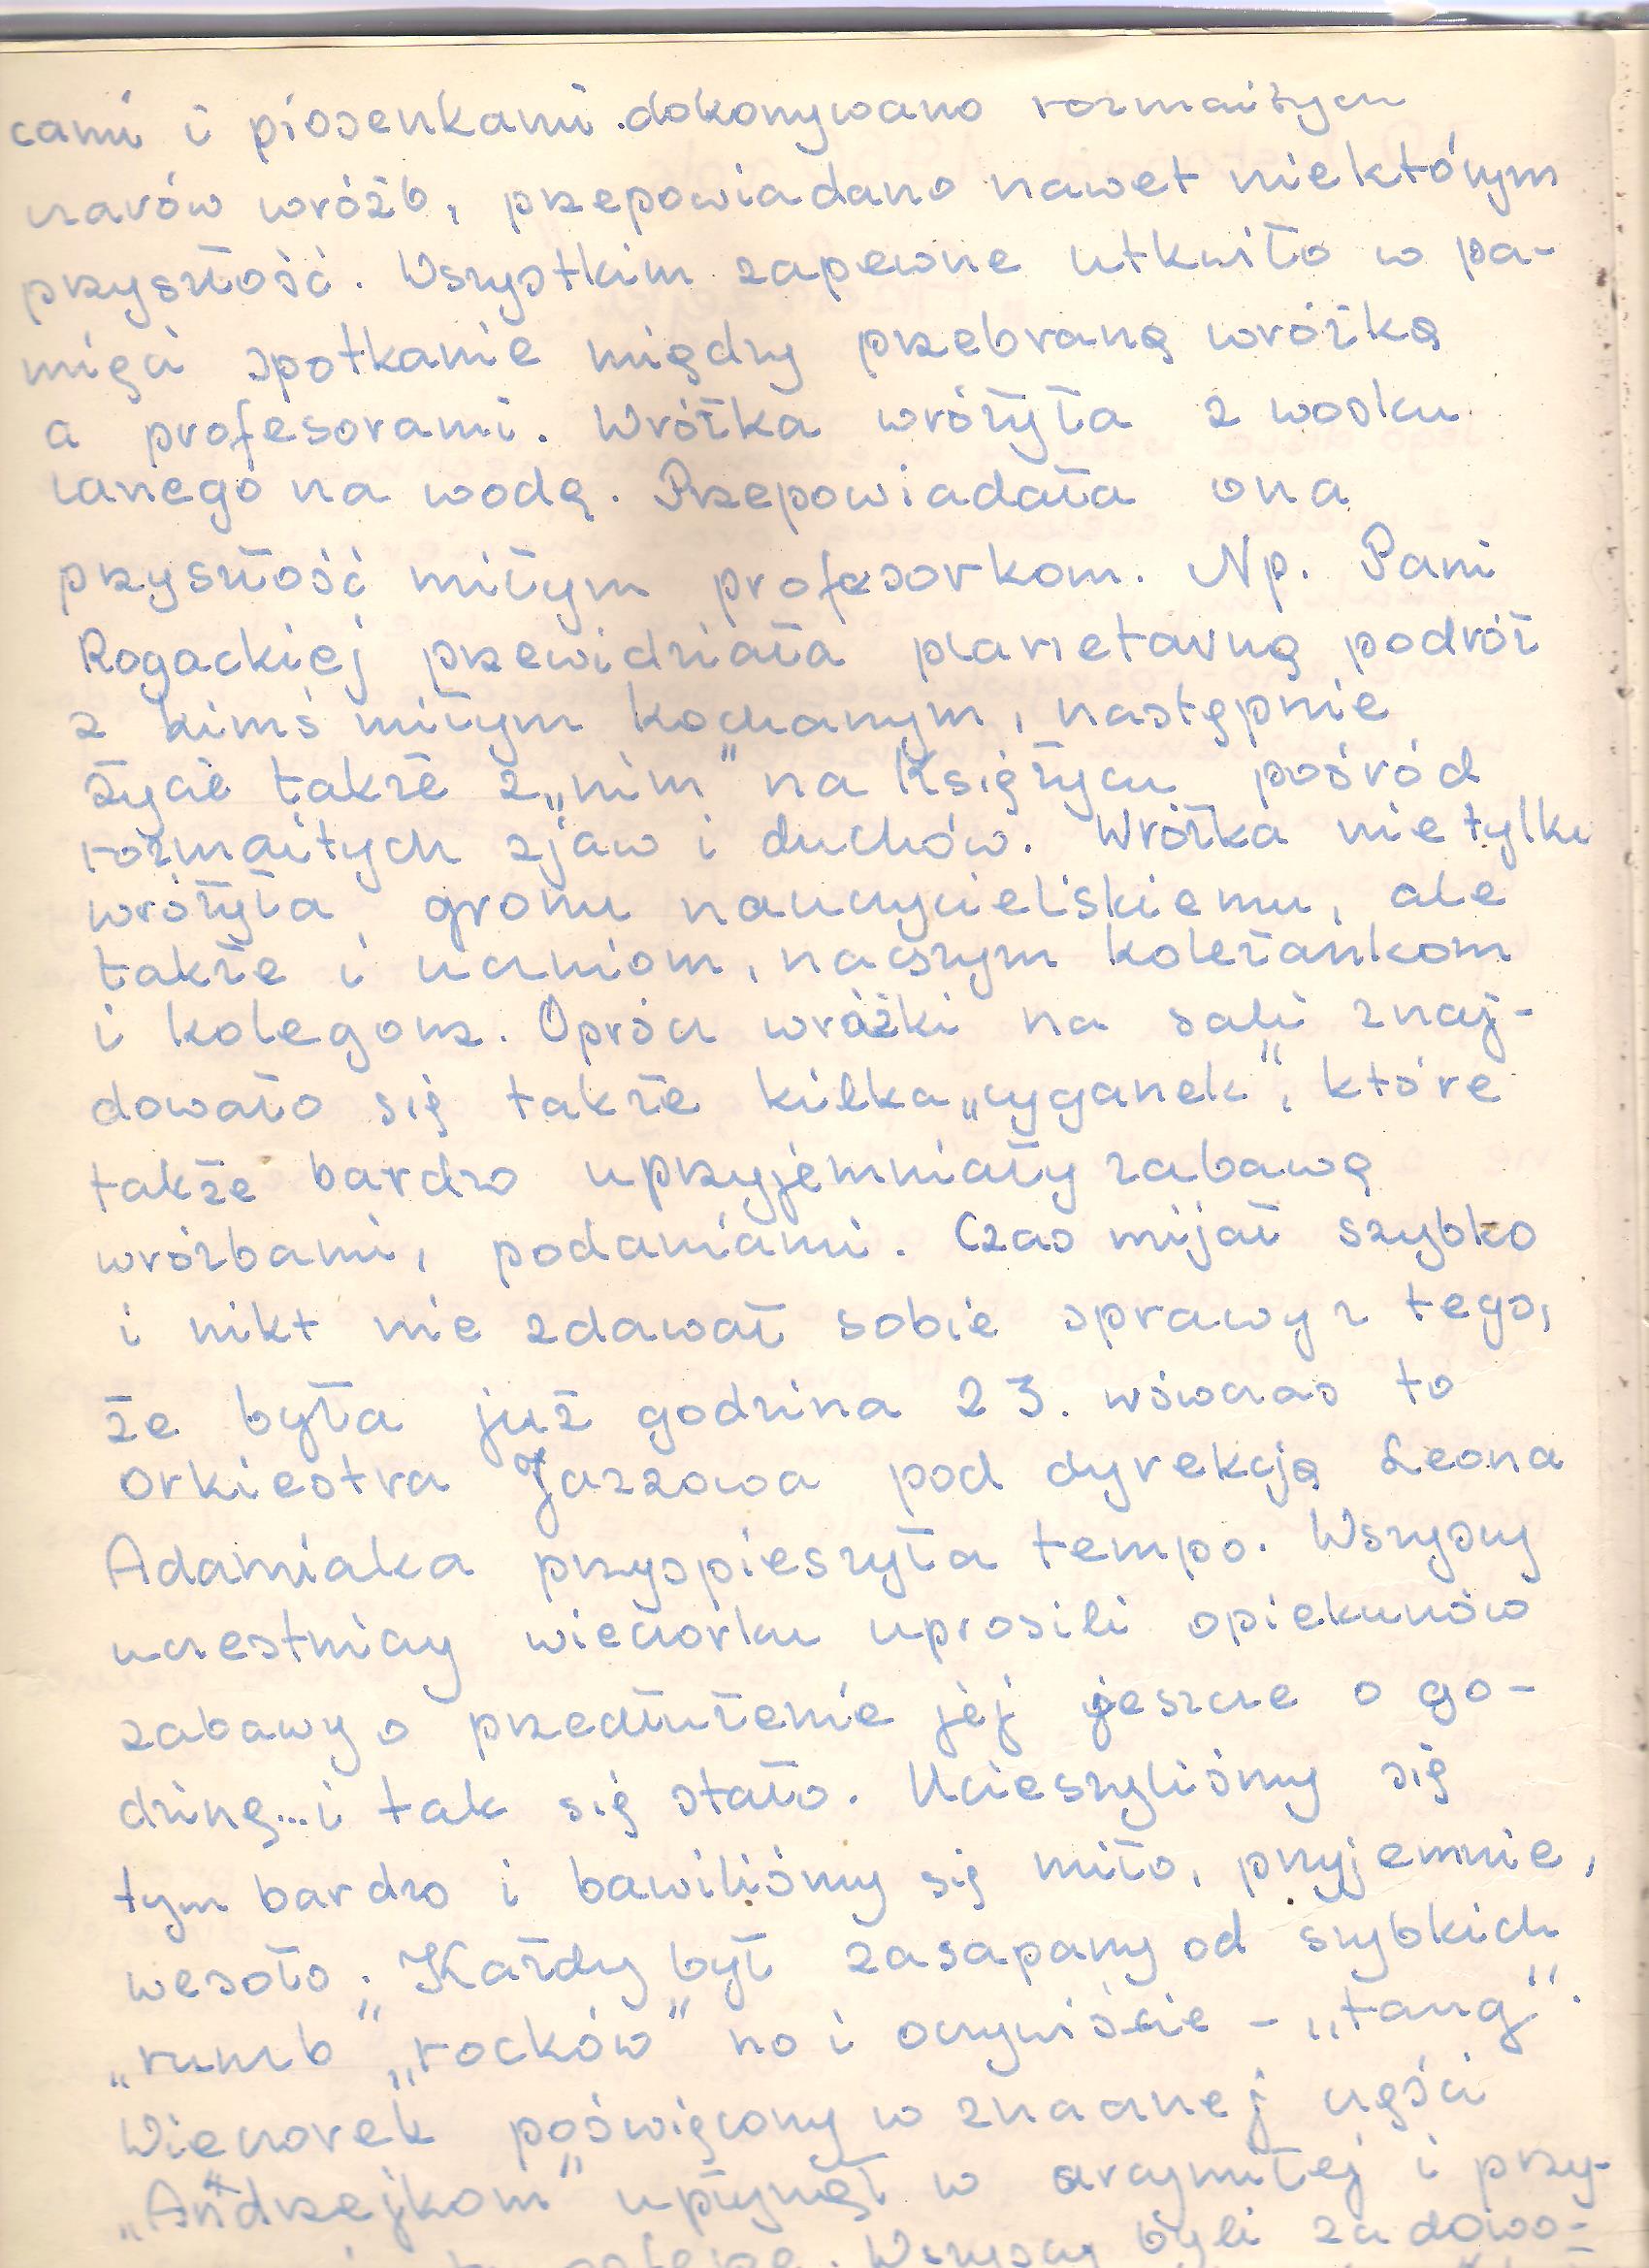 cami i piosenkami dokonywano rozmaitych
czarów wróżb, przepowiadano nawet niektórym
przyszłość. Wszystkim zapewne utkwiło w pa-
mięci spotkanie między przebraną wróżką
a profesorami. Wróżka wróżyła z wosku
lanego na wodę. Przepowiadała ona
przyszłość miłym profesorkom. Np. Pani
Rogackiej przewidziała planetarną podróż
z kimś miłym kochanym, następnie
życie także z „nim” na Księżycu pośród
rozmaitych zjaw i duchów. Wróżka nie tylko
wróżyła gronu nauczycielskiemu, ale
także i uczniom, naszym koleżankom
i kolegom. Oprócz wróżki na sali znaj-
dowało się także kilka „cyganek”, które
także bardzo uprzyjemniały zabawę
wróżbami, podaniami. Czas mijał szybko
i nikt nie zdawał sobie sprawy z tego,
że była już godzina 23. wówczas to
Orkiestra Jazzowa pod dyrekcją Leona
Adamiaka przyspieszyła tempo. Wszyscy
uczestnicy wieczorku uprosili opiekunów
zabawy o przedłużenie jej jeszcze o go-
dzinę...i tak się stało. Ucieszyliśmy się
tym bardzo i bawiliśmy się miło, przyjemnie,
wesoło. Każdy był zasapany od szybkich
„rumb” „rocków” no i oczywiście – „tang”.
Wieczorek poświęcony w znacznej części
„Andrzejkom” upłynął w arcymiłej i przy-
Wszyscy byli zadowo-